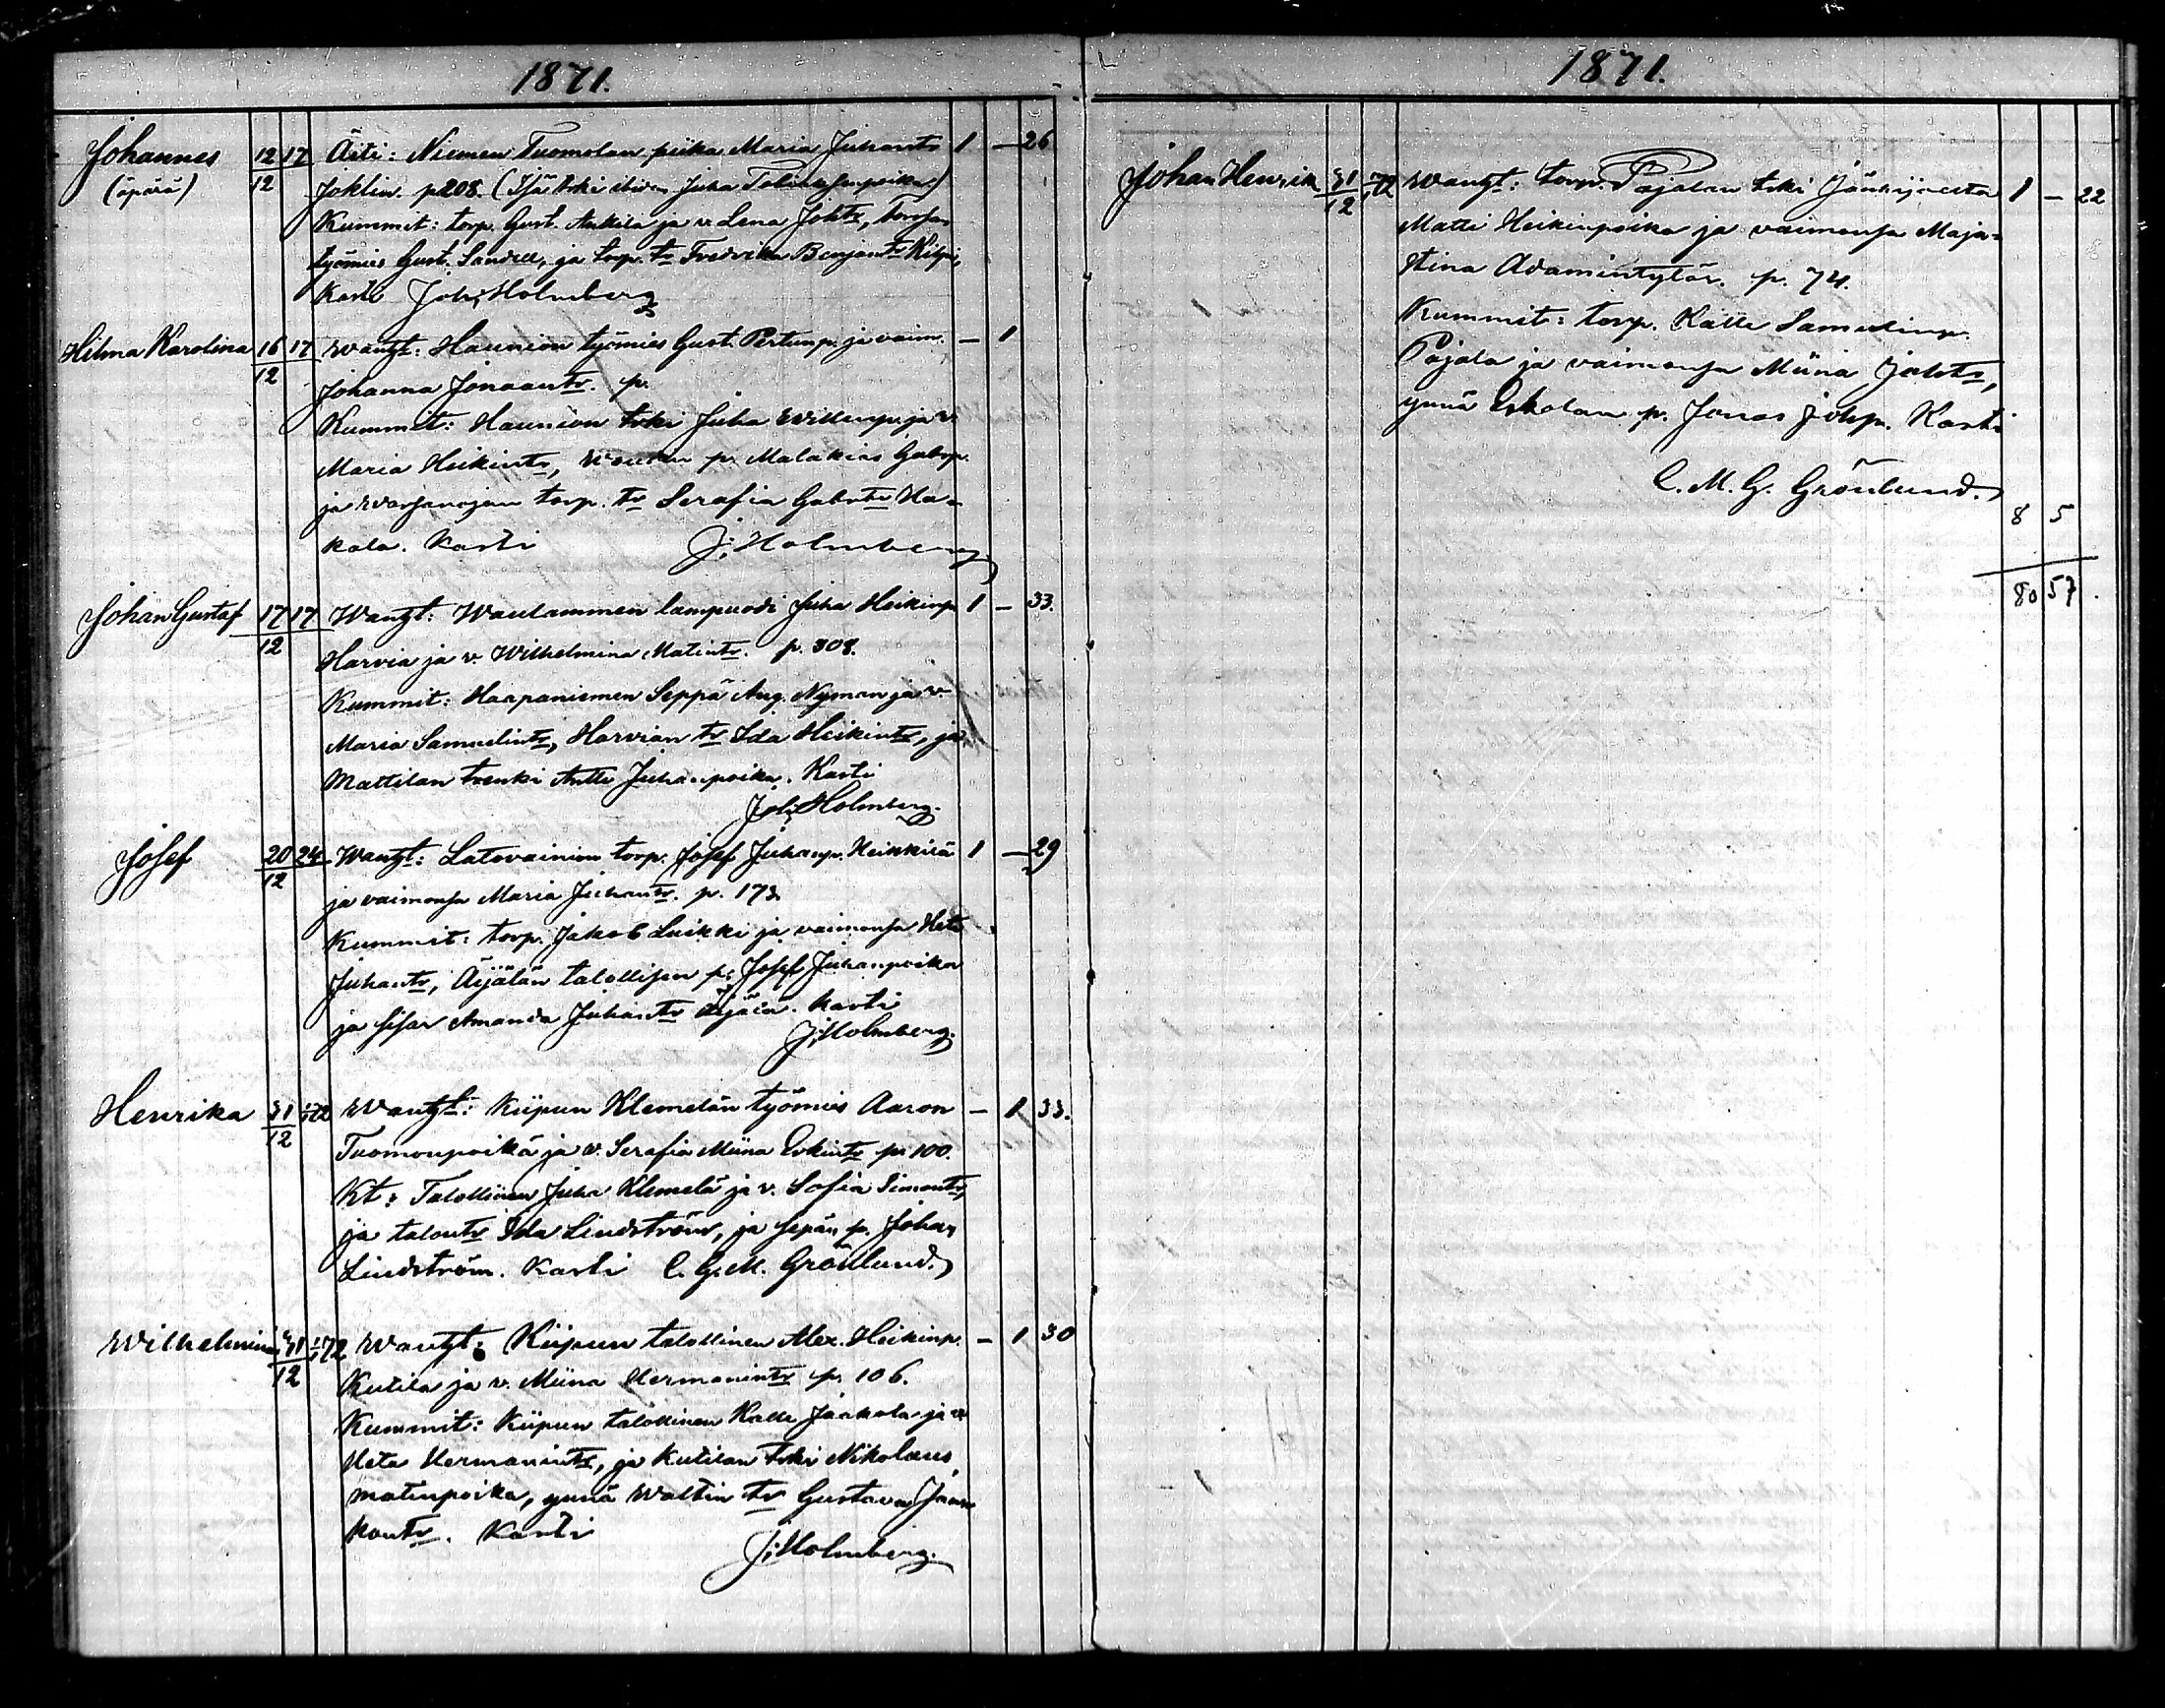 1871.
Johannes 12/12 17 Äiti: Niemen Tuomolan piika Maria Juhantr 1 — 26
(äpärä) p 208. (Isä trki Juha
Kummit: torp. Gust. Ankila ja v. Lena Johtr,
työmies Gust. Sandell, ja torp. tr Fredrika Benjamtr Kilpi,
Kasti Joh; Holmberg
Hilma Karolina 16/12 17 Wanht: Haunion työmies Gust. Pertunp. ja vaim. — 1
Johanna Jonaantr. p.
Kummit: Haunion trki Juha Willenp. ja v.
Maria Heikintr, p. Malakias Gabrp.
ja torp. tr Serafia Gabrtr Ha-
kala. Kasti J; Holmberg
Johan Gustaf 17/12 17 Wanht: Wautammen lampuodi Juha Heikinp. 1 — 33.
Harvia ja v. Wilhelmina Matintr. p. 308.
Kummit: Haapaniemen Seppä Aug. Nyman ja v.
Maria Samulintr, Harvian tr Ida Heikintr, ja
Mattilan trenki Antti Juhanpoika. Kasti
Joh; Holmberg.
Josef 20/12 24 Wanht: Latovainion torp. Josef Juhanp. Heikkilä 1 — 29
ja vaimonsa Maria Juhantr. p. 173.
Kummit: torp. Jakob Luikki ja vaimonsa Heta
Juhantr, Äijälän talollisen p. Josef Juhanpoika
ja sisar Amanda Juhantr Äijälä. Kasti
J; Holmberg.
Henrika 31/12 1/1 72 Wanht: Kiipun Klemelän työmies Aaron — 1 33.
Tuomonpoika ja v. Serafia Miina Erkintr p. 100.
Kt: Talollinen Juha Klemelä ja v. Sofia Simontr,
ja talontr Ida Lindström, ja sepän p. Johan
Lindström. Kasti C. G. M. Grönlund.
Wilhelmina 31/12 1/1 72 Wanht: Kiipun talollinen Alex. Heikinp. — 1 30
Kutila ja v. Miina Hermanintr p. 106.
Kummit: Kiipun talollinen Kalle Jaakola ja v.
Heta Hermanintr, ja Kutilan trki Nikolaus
Matinpoika, ynnä Waltin tr Gustava Jaa-
kontr. Kasti
J; Holmberg.
1871.
Johan Henrik 31/12 1/1 72 Wanht: torp. Pajalan trki Jänhijoelta 1 — 22
Matti Heikinpoika ja vaimonsa Maja-
Stina Adamintytär. p. 74.
Kummit: torp. Kalle Samulinp.
Pajala ja vaimonsa Miina Johtr,
ynnä Eskolan p. Jonas Johp. Kasti
C. M. G. Grönlund.
8 5
80 57.